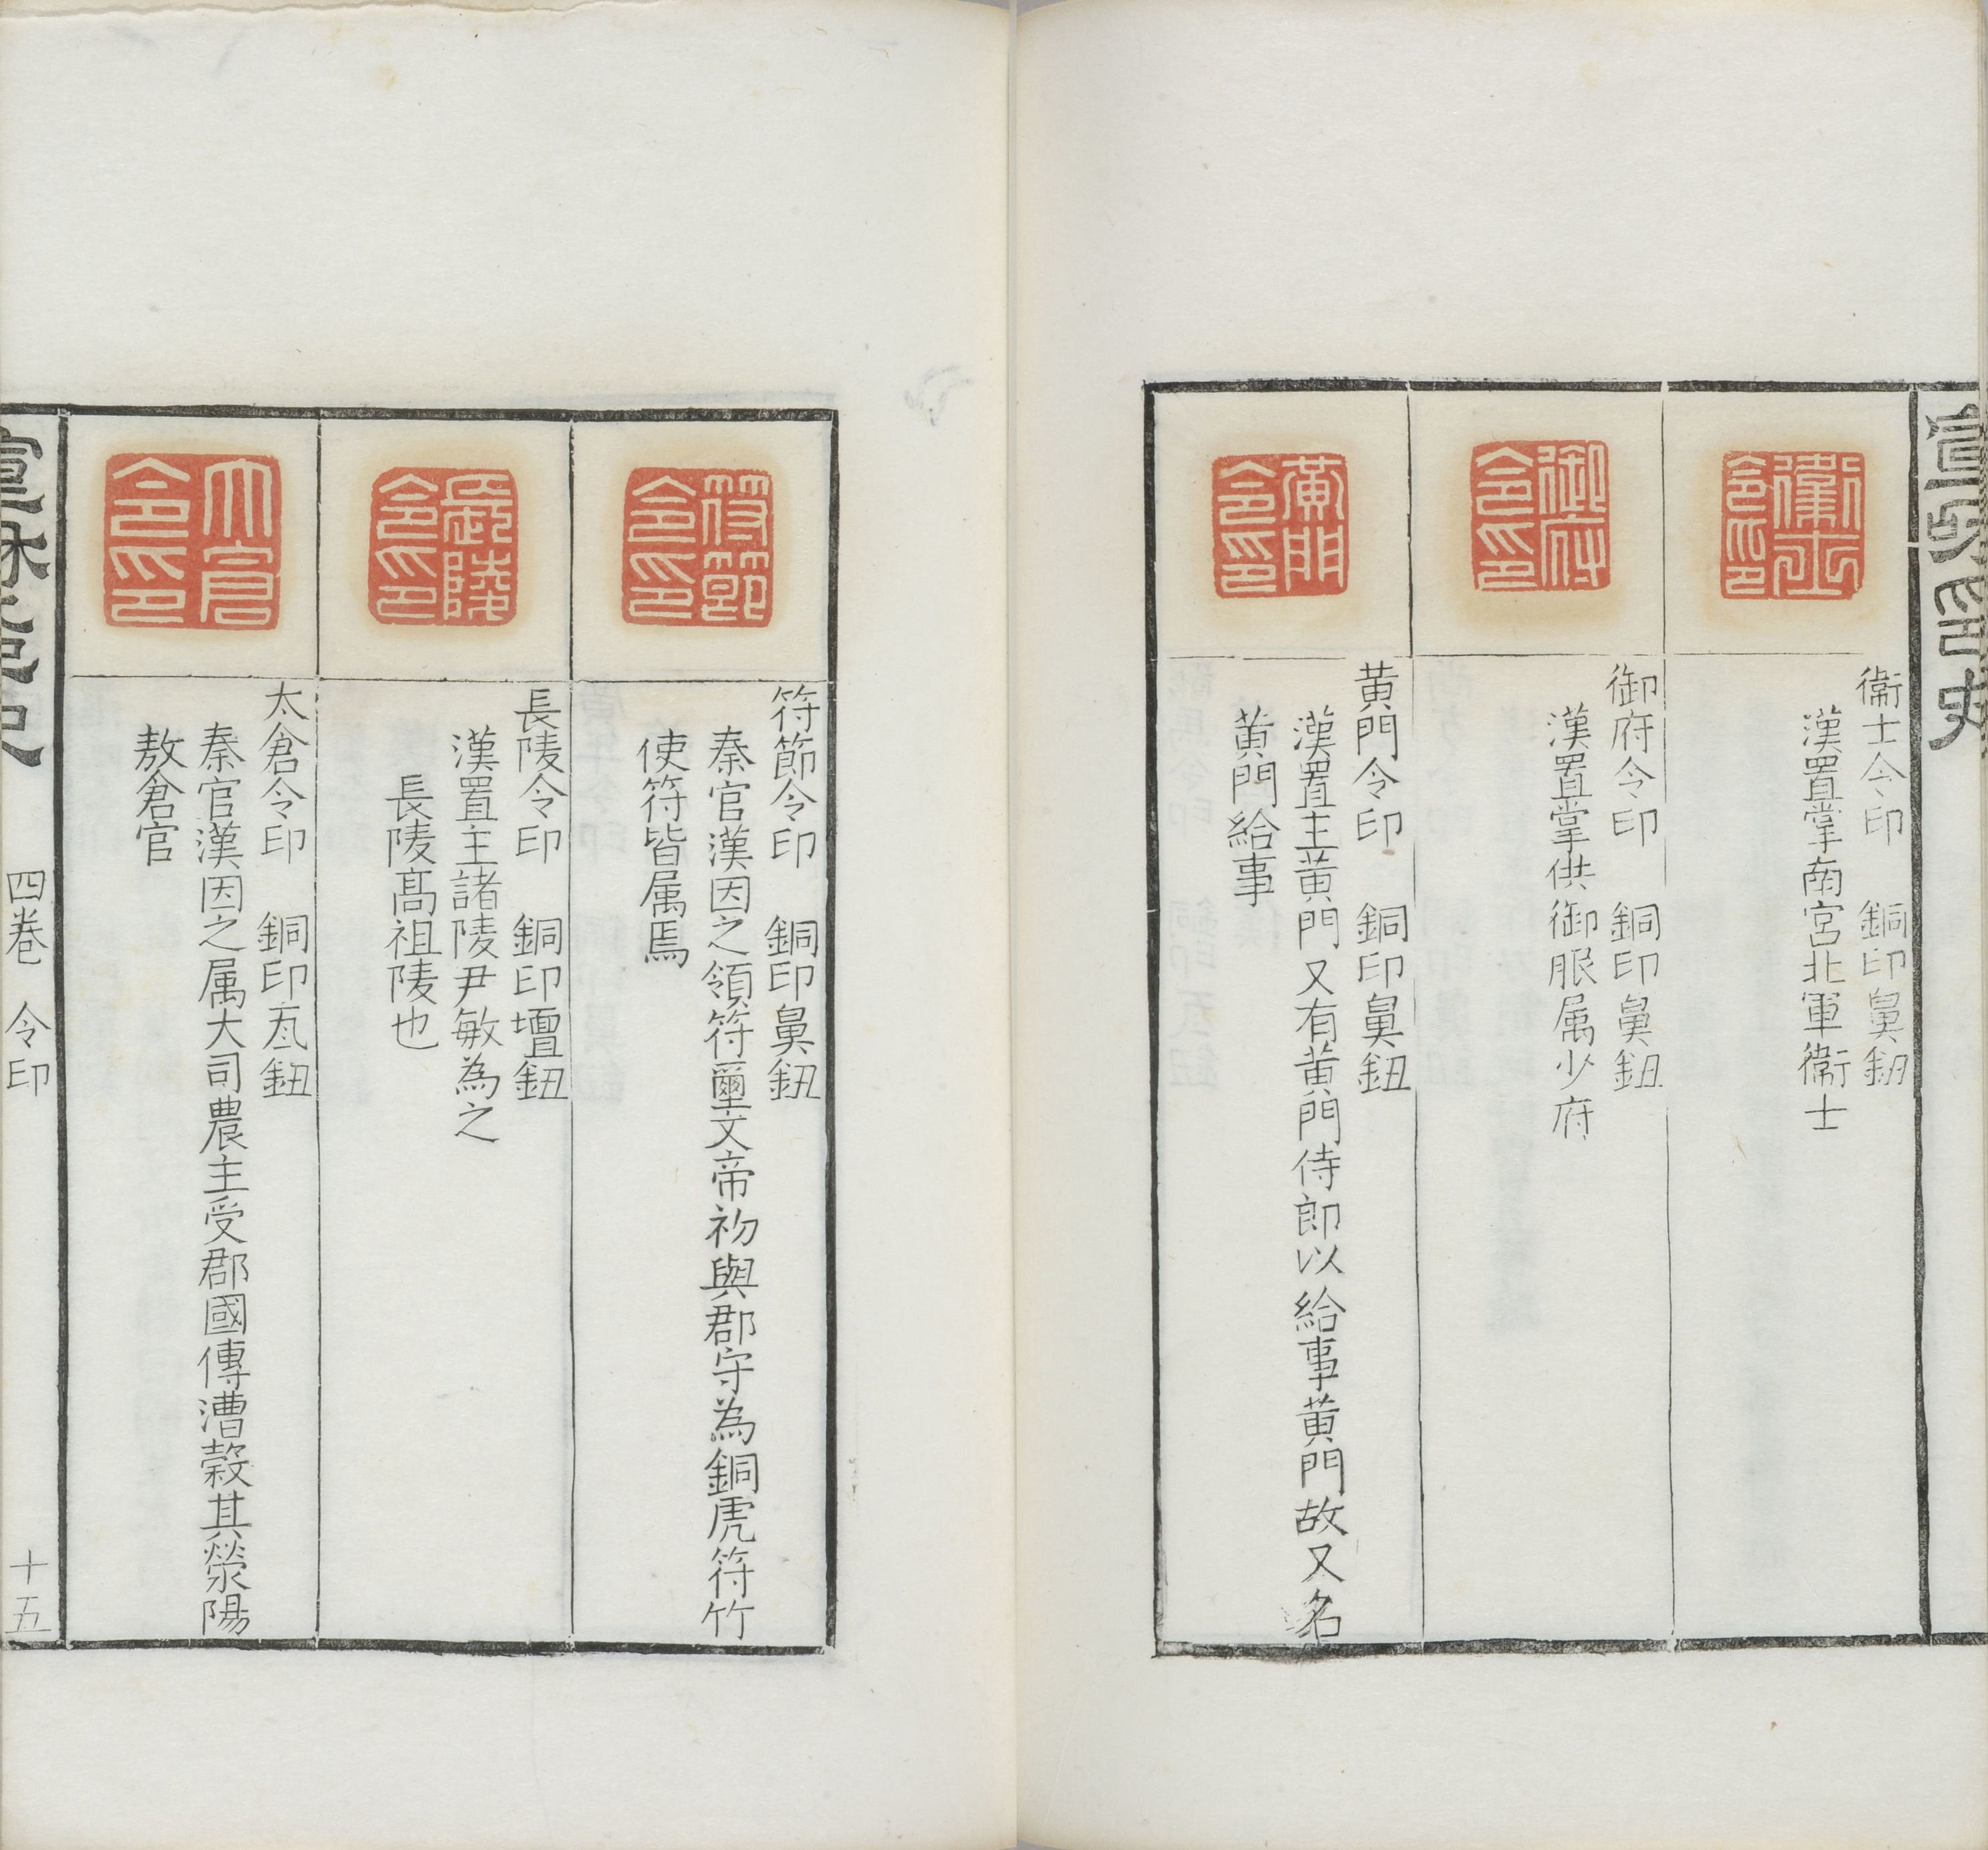 宣和印史
衞士令印
衞士令印　銅印鼻鈕
漢置掌南宮北軍衞士
御府令印
御府令印　銅印鼻鈕
漢置掌供御服属少府
黃門令印
黄門令印　銅印鼻鈕
漢置主黄門又有黄門侍郎以給事黄門故又名
黄門給事
符節令印
符節令印　銅印鼻鈕
秦官漢因之領符璽文帝初與郡守為銅虎符竹
使符皆属焉
長陵令印
長陵令印　銅印壇鈕
漢置主諸陵尹敏為之
長陵髙祖陵也
大倉令印
太倉令印　銅印瓦鈕
秦官漢因之属大司農主受郡國傳漕穀其滎陽
敖倉官
宣和印史　四卷　令印　十五